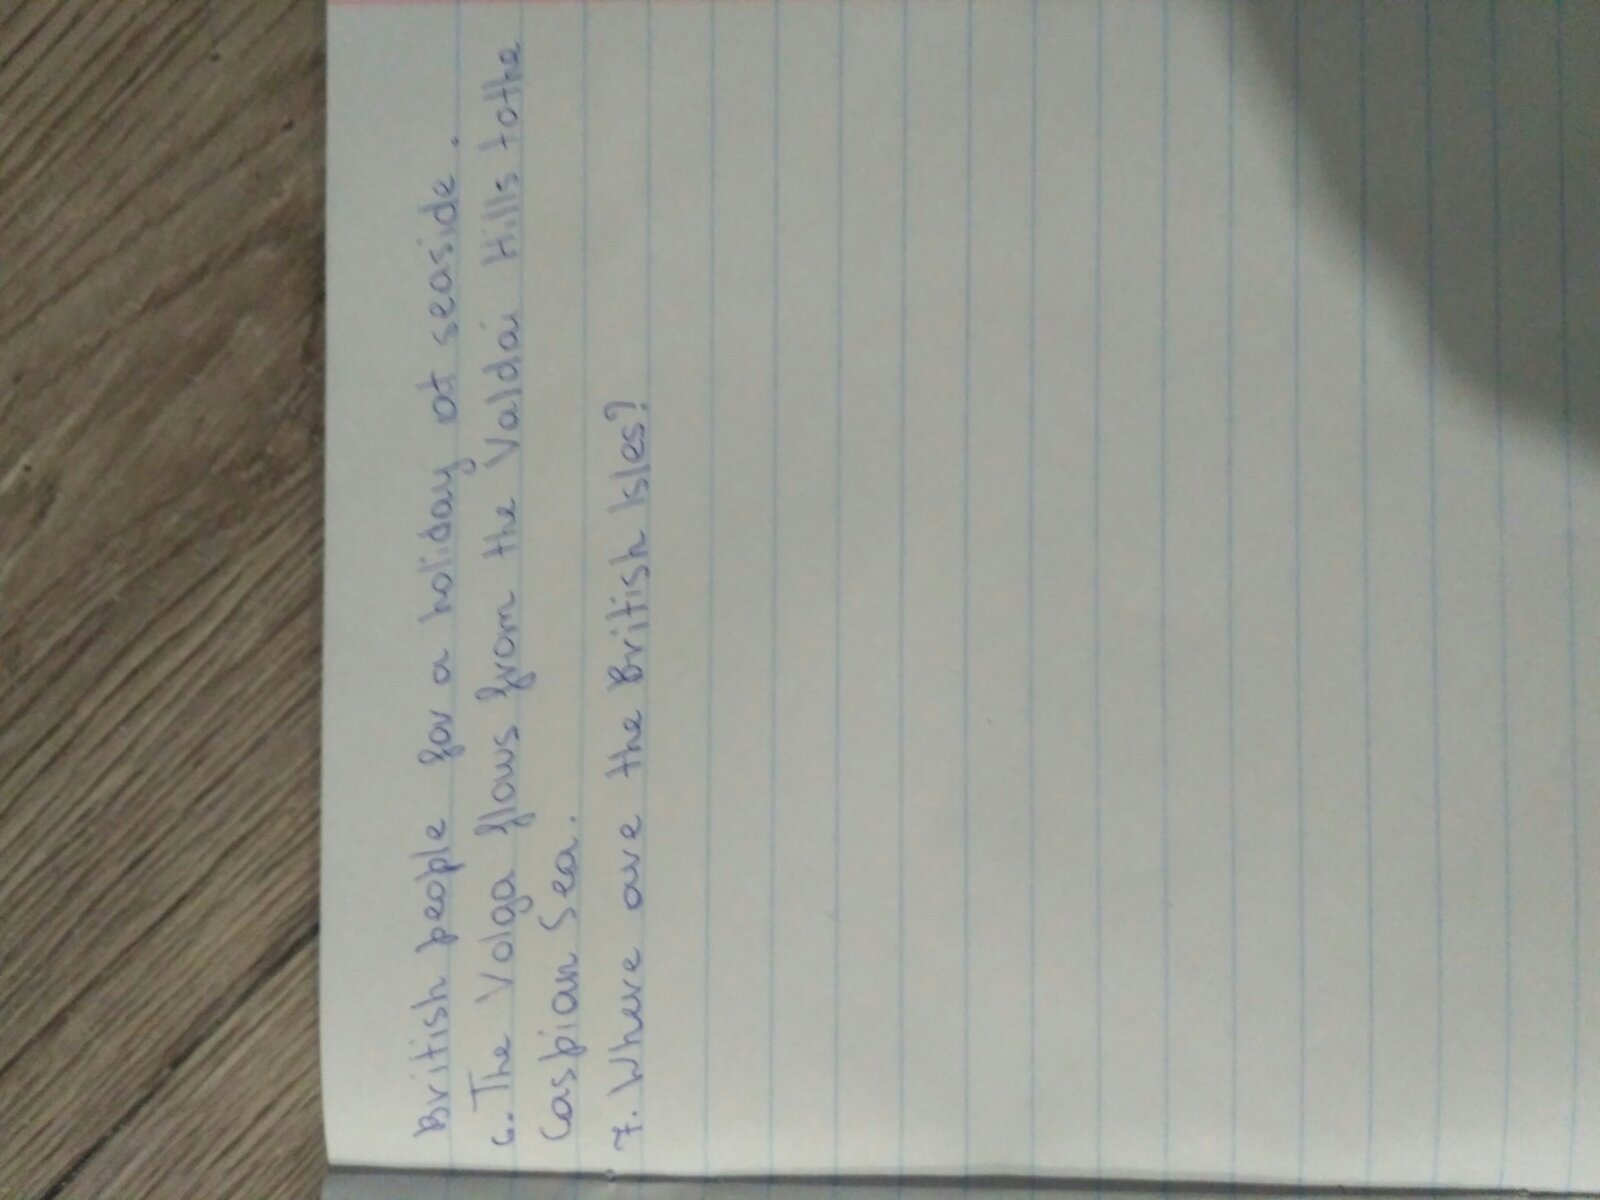 British people for a holiday at seaside.
6. The Volga flows from the Valdai Hills to the
Caspian Sea.
7. Where are the British Isles?